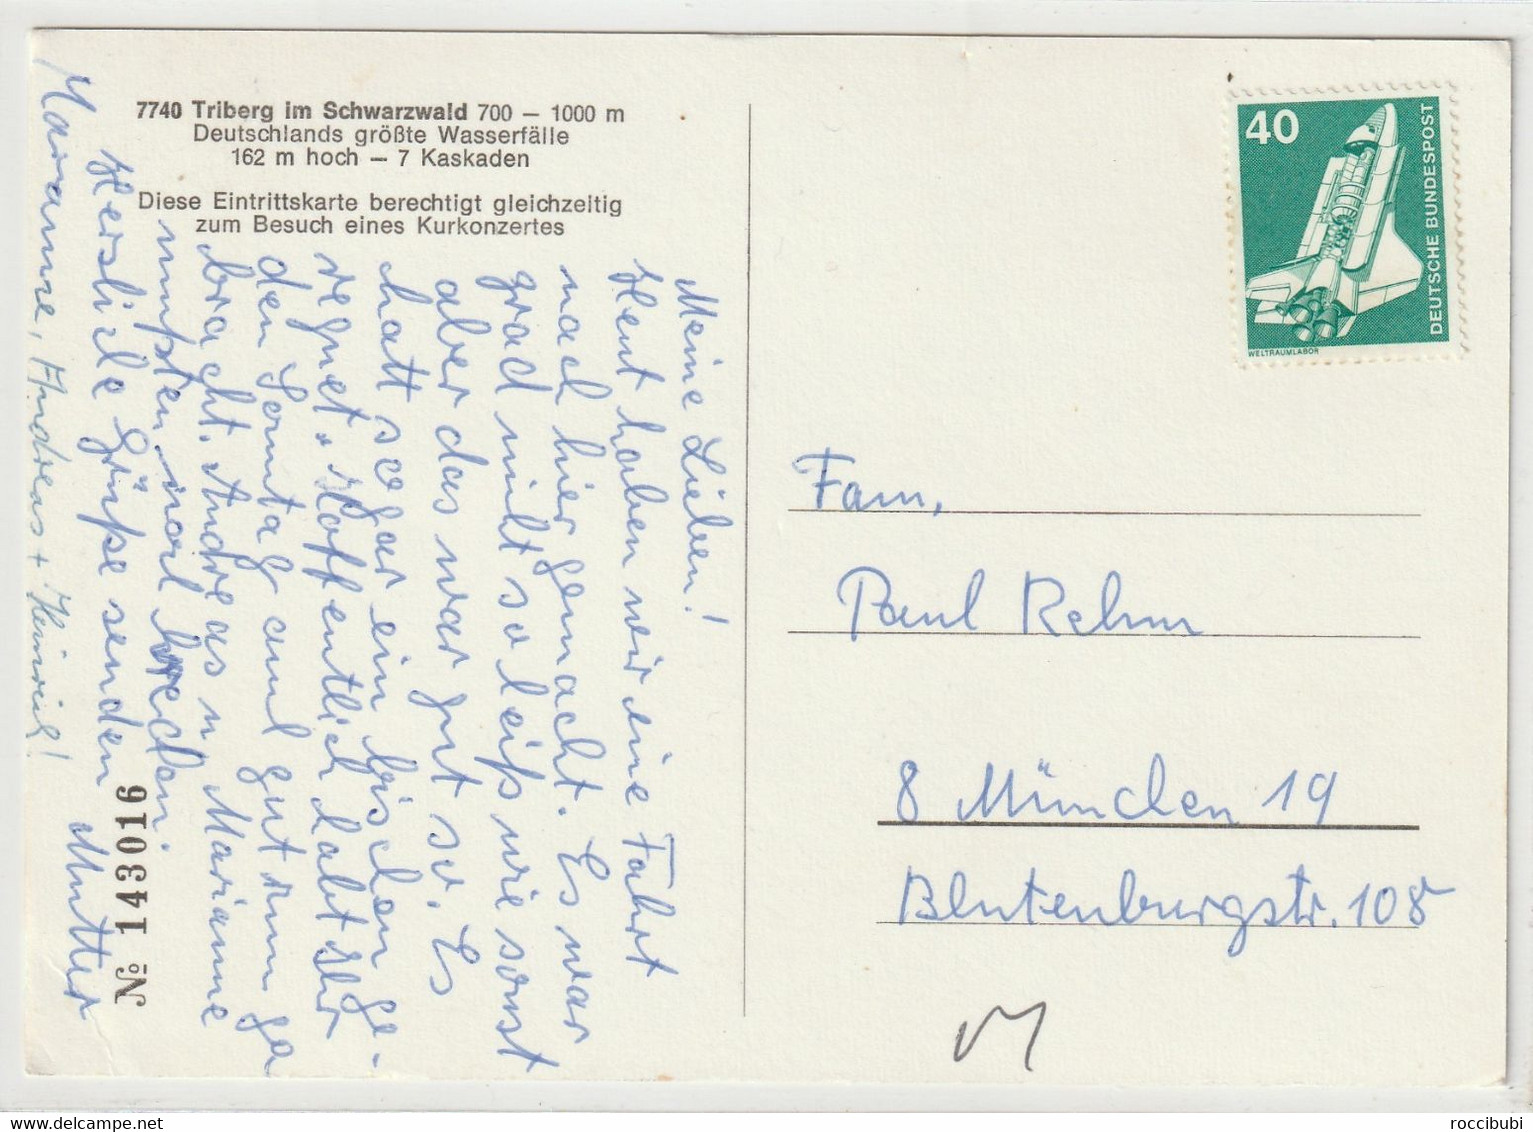 7740 Triberg im Schwarzwald 700 – 1000 m
Deutschlands größte Wasserfälle
162 m hoch – 7 Kaskaden
Diese Eintrittskarte berechtigt gleichzeitig
zum Besuch eines Kurkonzertes
Meine Lieben!
Heut haben wir eine Fahrt
nach hier gemacht. Es war
grad nicht so heiß wie sonst
aber das war gut so. Es
hatt sogar ein bischen ge-
regnet. Hoffentlich habt Ihr
den Sonntag auch gut rum ge
bracht. Andreas u Marianne
mußten noch
Herzliche Grüße senden Mutter
Marianne, Andreas + Heinrich!
№ 143016
40
DEUTSCHE BUNDESPOST
WELTRAUMLABOR
Fam,
Paul Rehm
8 München 19
Blutenburgstr. 108
delcampe.net
roccibubi